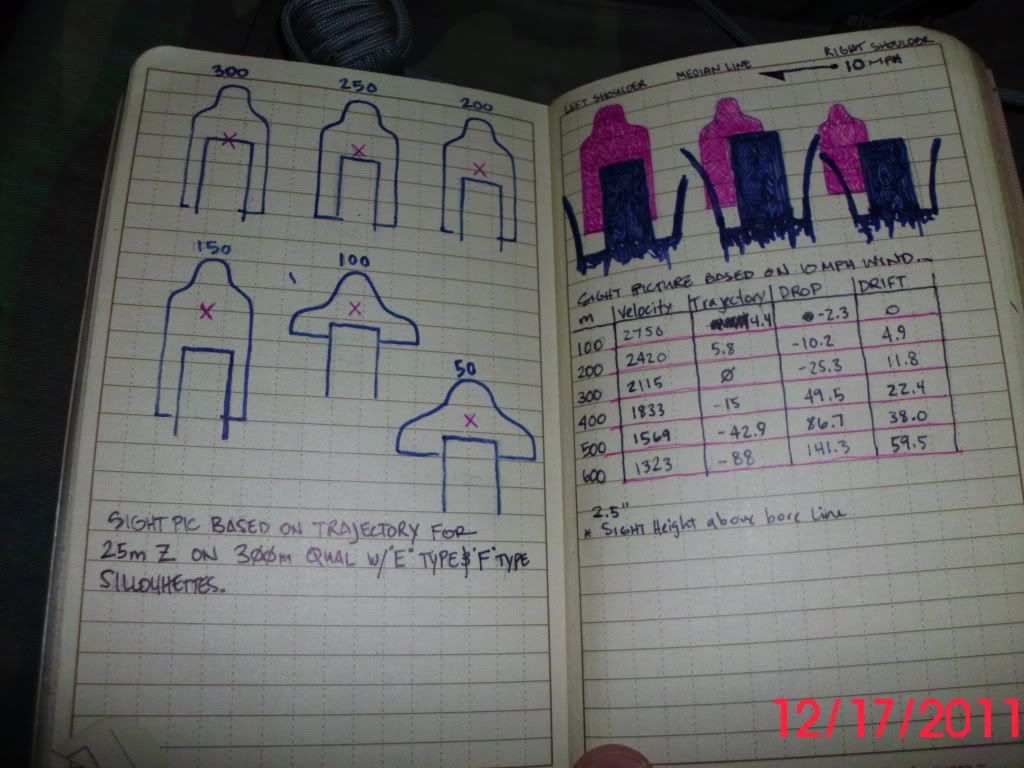 300
250
200
150
100
50
SIGHT PIC BASED ON TRAJECTORY FOR
25m Z ON 300m QUAL W/"E" TYPE & "F" TYPE
SILLOUHETTES.
LEFT SHOULDER MEDIAN LINE RIGHT SHOULDER
10 MPH
SIGHT PICTURE BASED ON 10 MPH WIND...
m Velocity Trajectory DROP DRIFT
100 2750 4.4 -2.3 0
200 2420 5.8 -10.2 4.9
300 2115 Ø -25.3 11.8
400 1833 -15 49.5 22.4
500 1569 -42.9 86.7 38.0
600 1323 -88 141.3 59.5
2.5"
* SIGHT Height above bore Line
12/17/2011